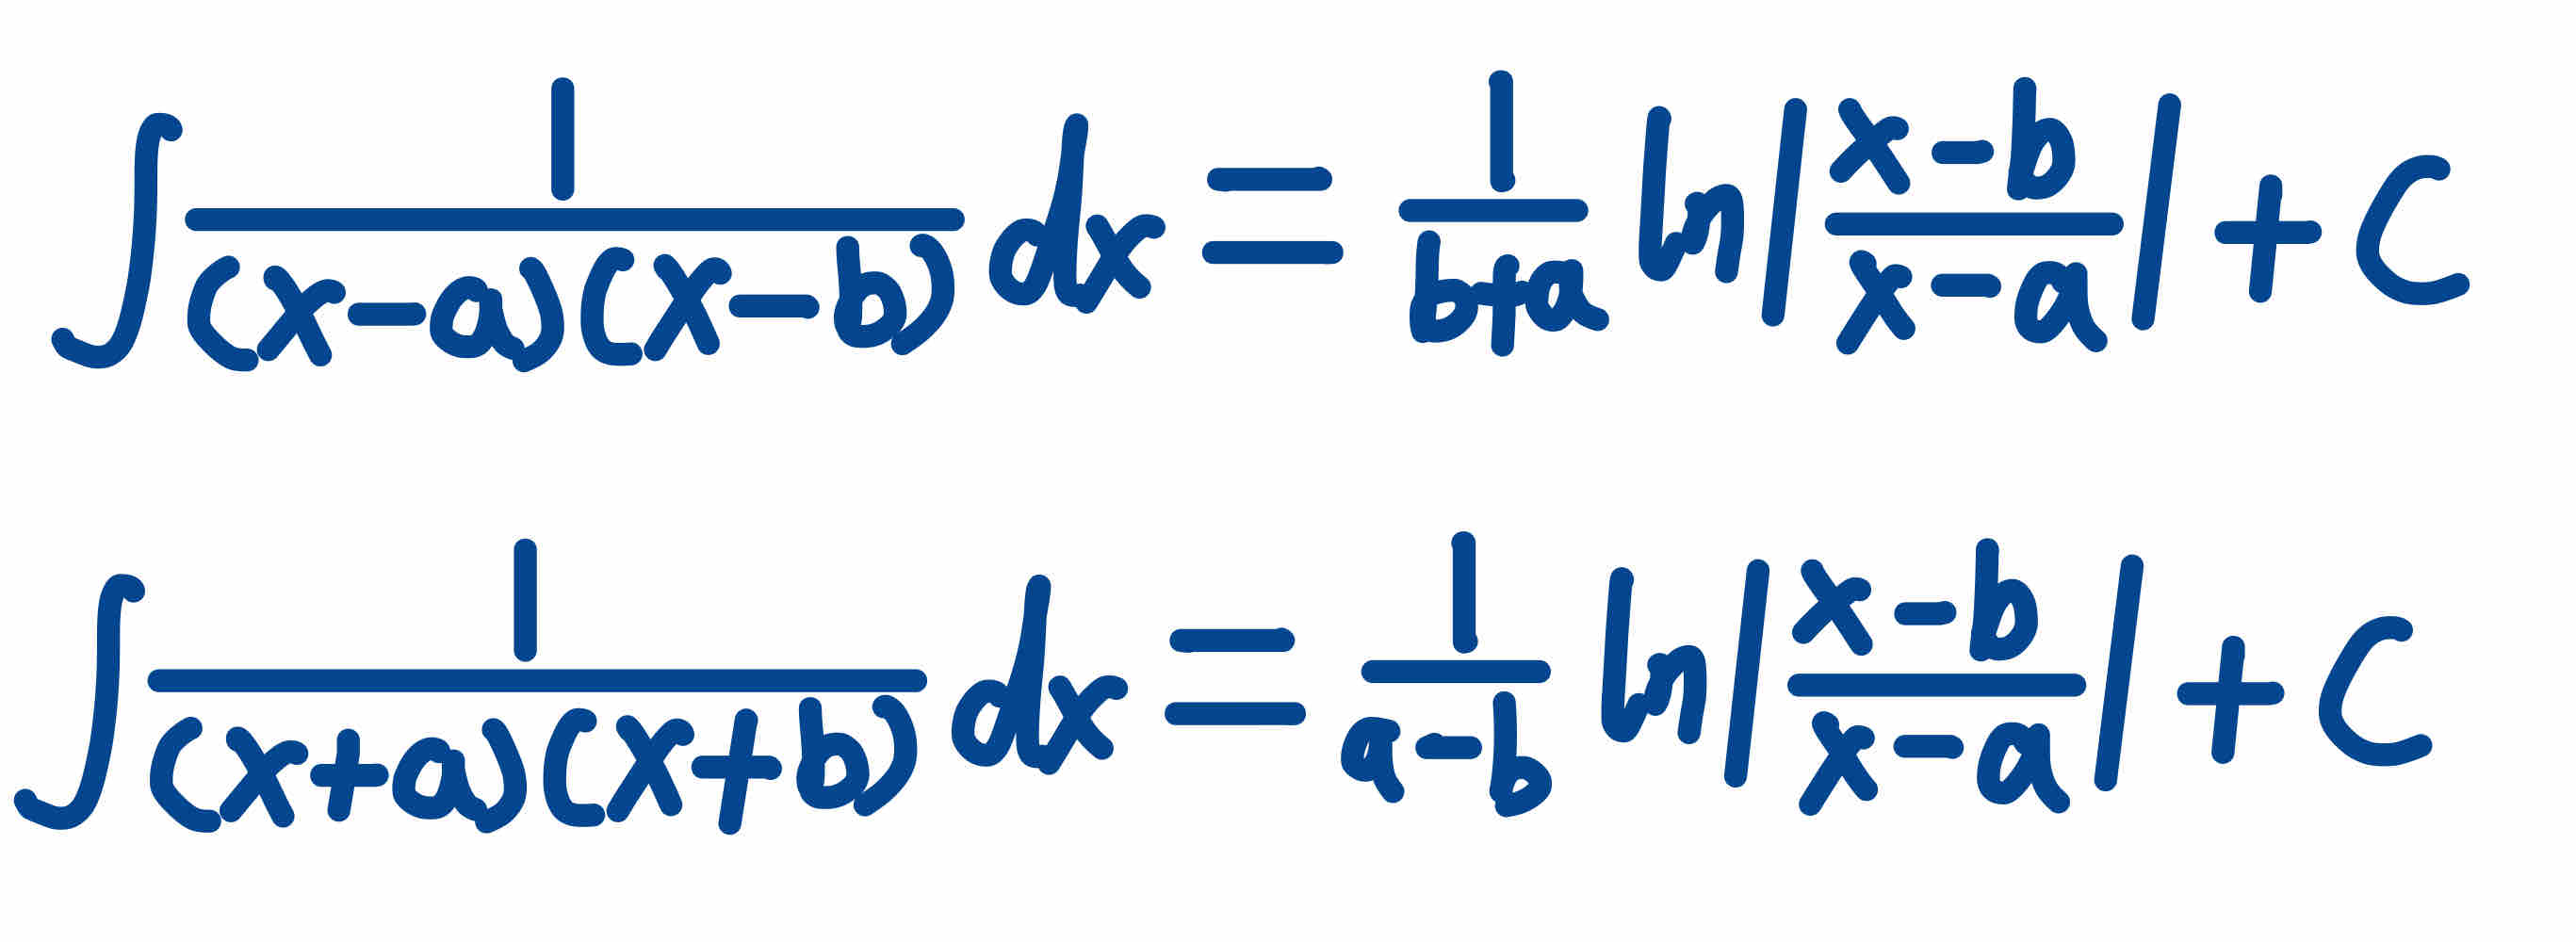 ∫ 1/((x-a)(x-b)) dx = 1/(b+a) ln|(x-b)/(x-a)| + C
∫ 1/((x+a)(x+b)) dx = 1/(a-b) ln|(x-b)/(x-a)| + C